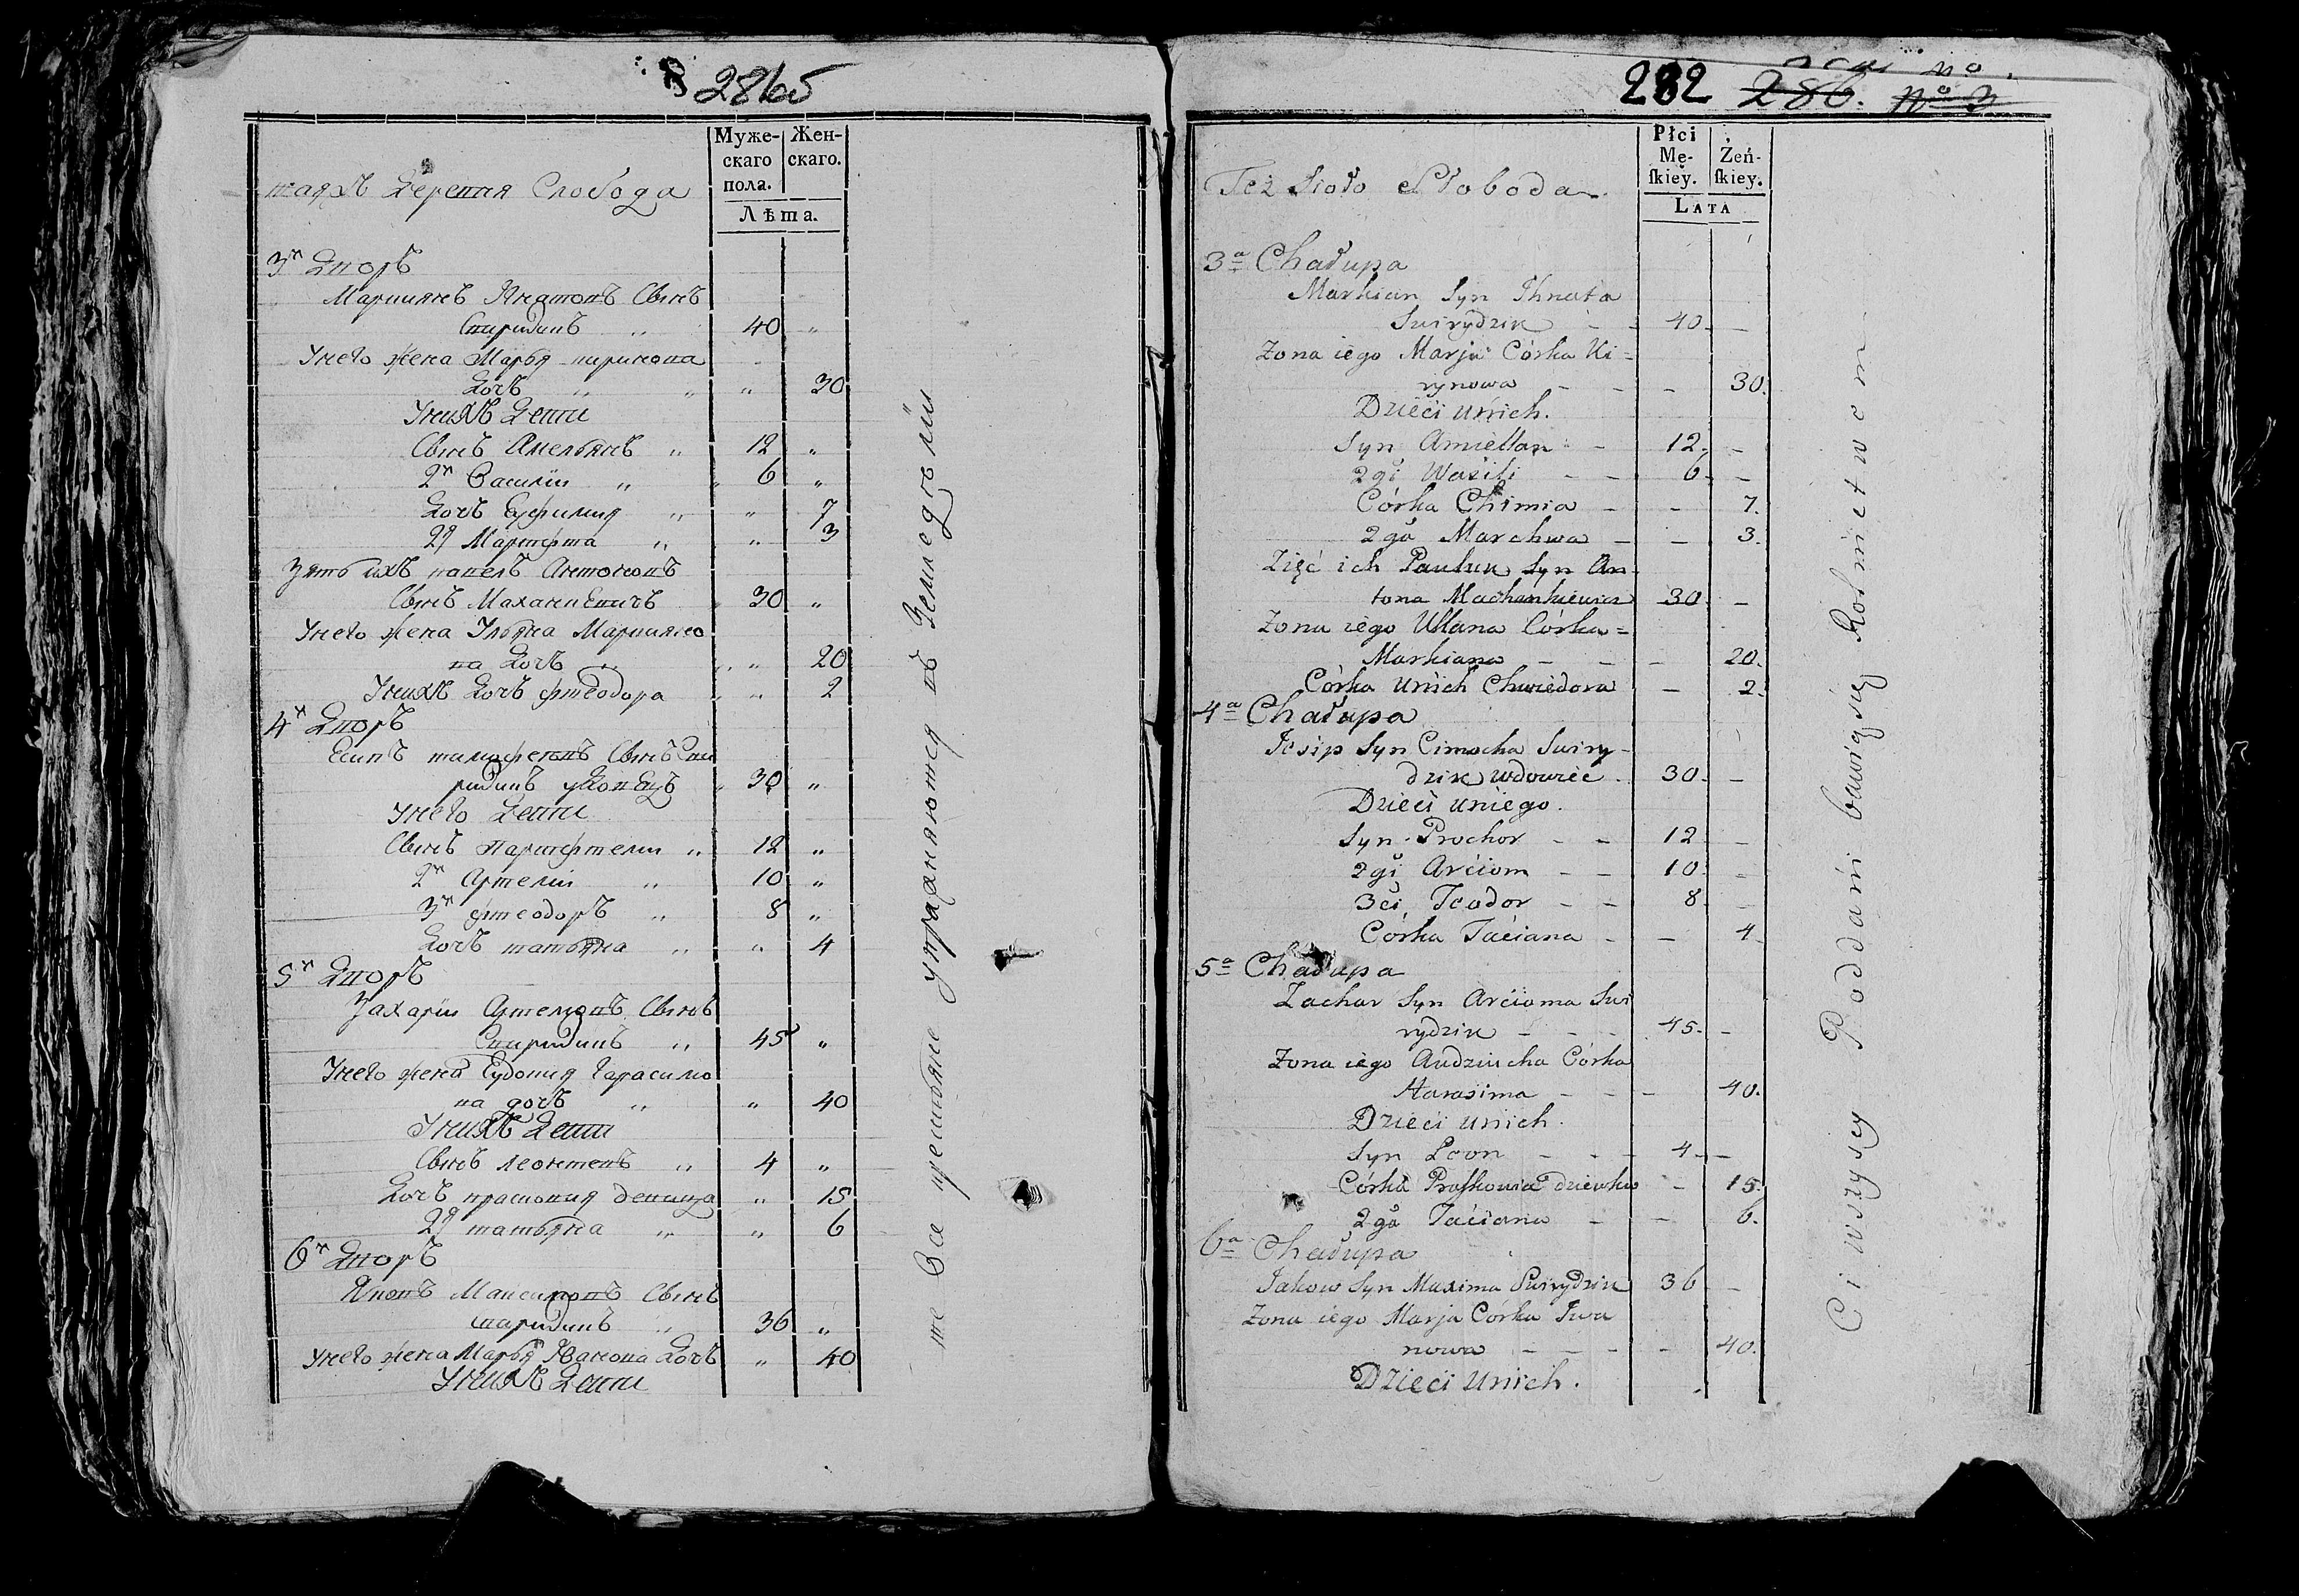 2865
Муже-
скаго
пола.
Жен-
скаго.
Лѣта.
таяжъ Деревня Слобода
3й Дворъ
Маркиянъ Игнатовъ Сынъ
Свиридикъ „ 40 „
Унего жена Марья кирикова
Дочь „ „ „ 30
Унихъ Дети
Сынъ Амельянъ „ 12 „
2й Василий „ 6 „
Дочь Ефимия „ „ 7
2я Марфа „ „ 3
Зять ихъ павелъ Антоновъ
Сынъ Маханкевичъ 30 „
Унего жена Ульяна Маркияно
ва Дочь „ „ 20
Унихъ Дочь фтеодора „ „ 2
4й Дворъ
Есипъ тимофеевъ Сынъ Сви
ридикъ удовецъ 30 „
Унего Дети
Сынъ „ 12 „
2й Артемий „ 10 „
3й фтеодоръ „ 8 „
Дочь татьяна „ „ 4
5й Дворъ
Захарий Артемовъ Сынъ
Свиридикъ „ 45 „
Унего жена Евдокия Гарасимо
ва дочь „ „ 40
Унихъ Дети
Сынъ леонтей „ 4 „
Дочь прасковия девица „ 15
2я татьяна „ „ 6
6й Дворъ
Яковъ Максимовъ Сынъ
Свиридикъ „ 36 „
Унего жена Марья Иванова Дочь „ 40
Унихъ Дети
те Все крестьяне упражняются въ Земледѣлии
282 286. No 3
Płci
Mę-
ſkiey.
Żeń-
ſkiey.
LATA
Też Sioło Słoboda
3a Chałupa
Markian Syn Ihnata
Swirydzik - 40. -
Zona iego Marja Córka Ki=
rykowa - - - 30.
Dzieci unich.
Syn Amellan - 12. -
2gi Wasili - - 6. -
Córka Chimia - - 7.
2ga Marchwa - - 3.
Zięć ich Pauluk Syn An
tona Machankiewicz 30. -
Zona iego Ullana Córka=
Markiana - - - 20.
Córka unich Chwiedora - 2.
4a Chałupa
Josip Syn Cimocha Swiry-
dzik wdowiec. 30. -
Dzieci uniego.
Syn Prochor - - 12 -
2gi Arciom - - 10. -
3ci Teodor - - 8. -
Córka Taciana - - 4.
5a Chałupa
Zachar Syn Arcioma Swi
rydzik - - - 45. -
Zona iego Audziucha Córka
Harasima - - - 40.
Dzieci unich.
Syn Leon - - - 4. -
Córka Praſkowia dziewka - 15.
2ga Taciana - - 6.
6a Chałupa
Jakow Syn Maxima Swirydzik 36 -
Zona iego Marja Córka Iwa
nowa - - - - 40.
Dzieci unich.
Ci wszyscy Poddani bawią się Rolnictwem